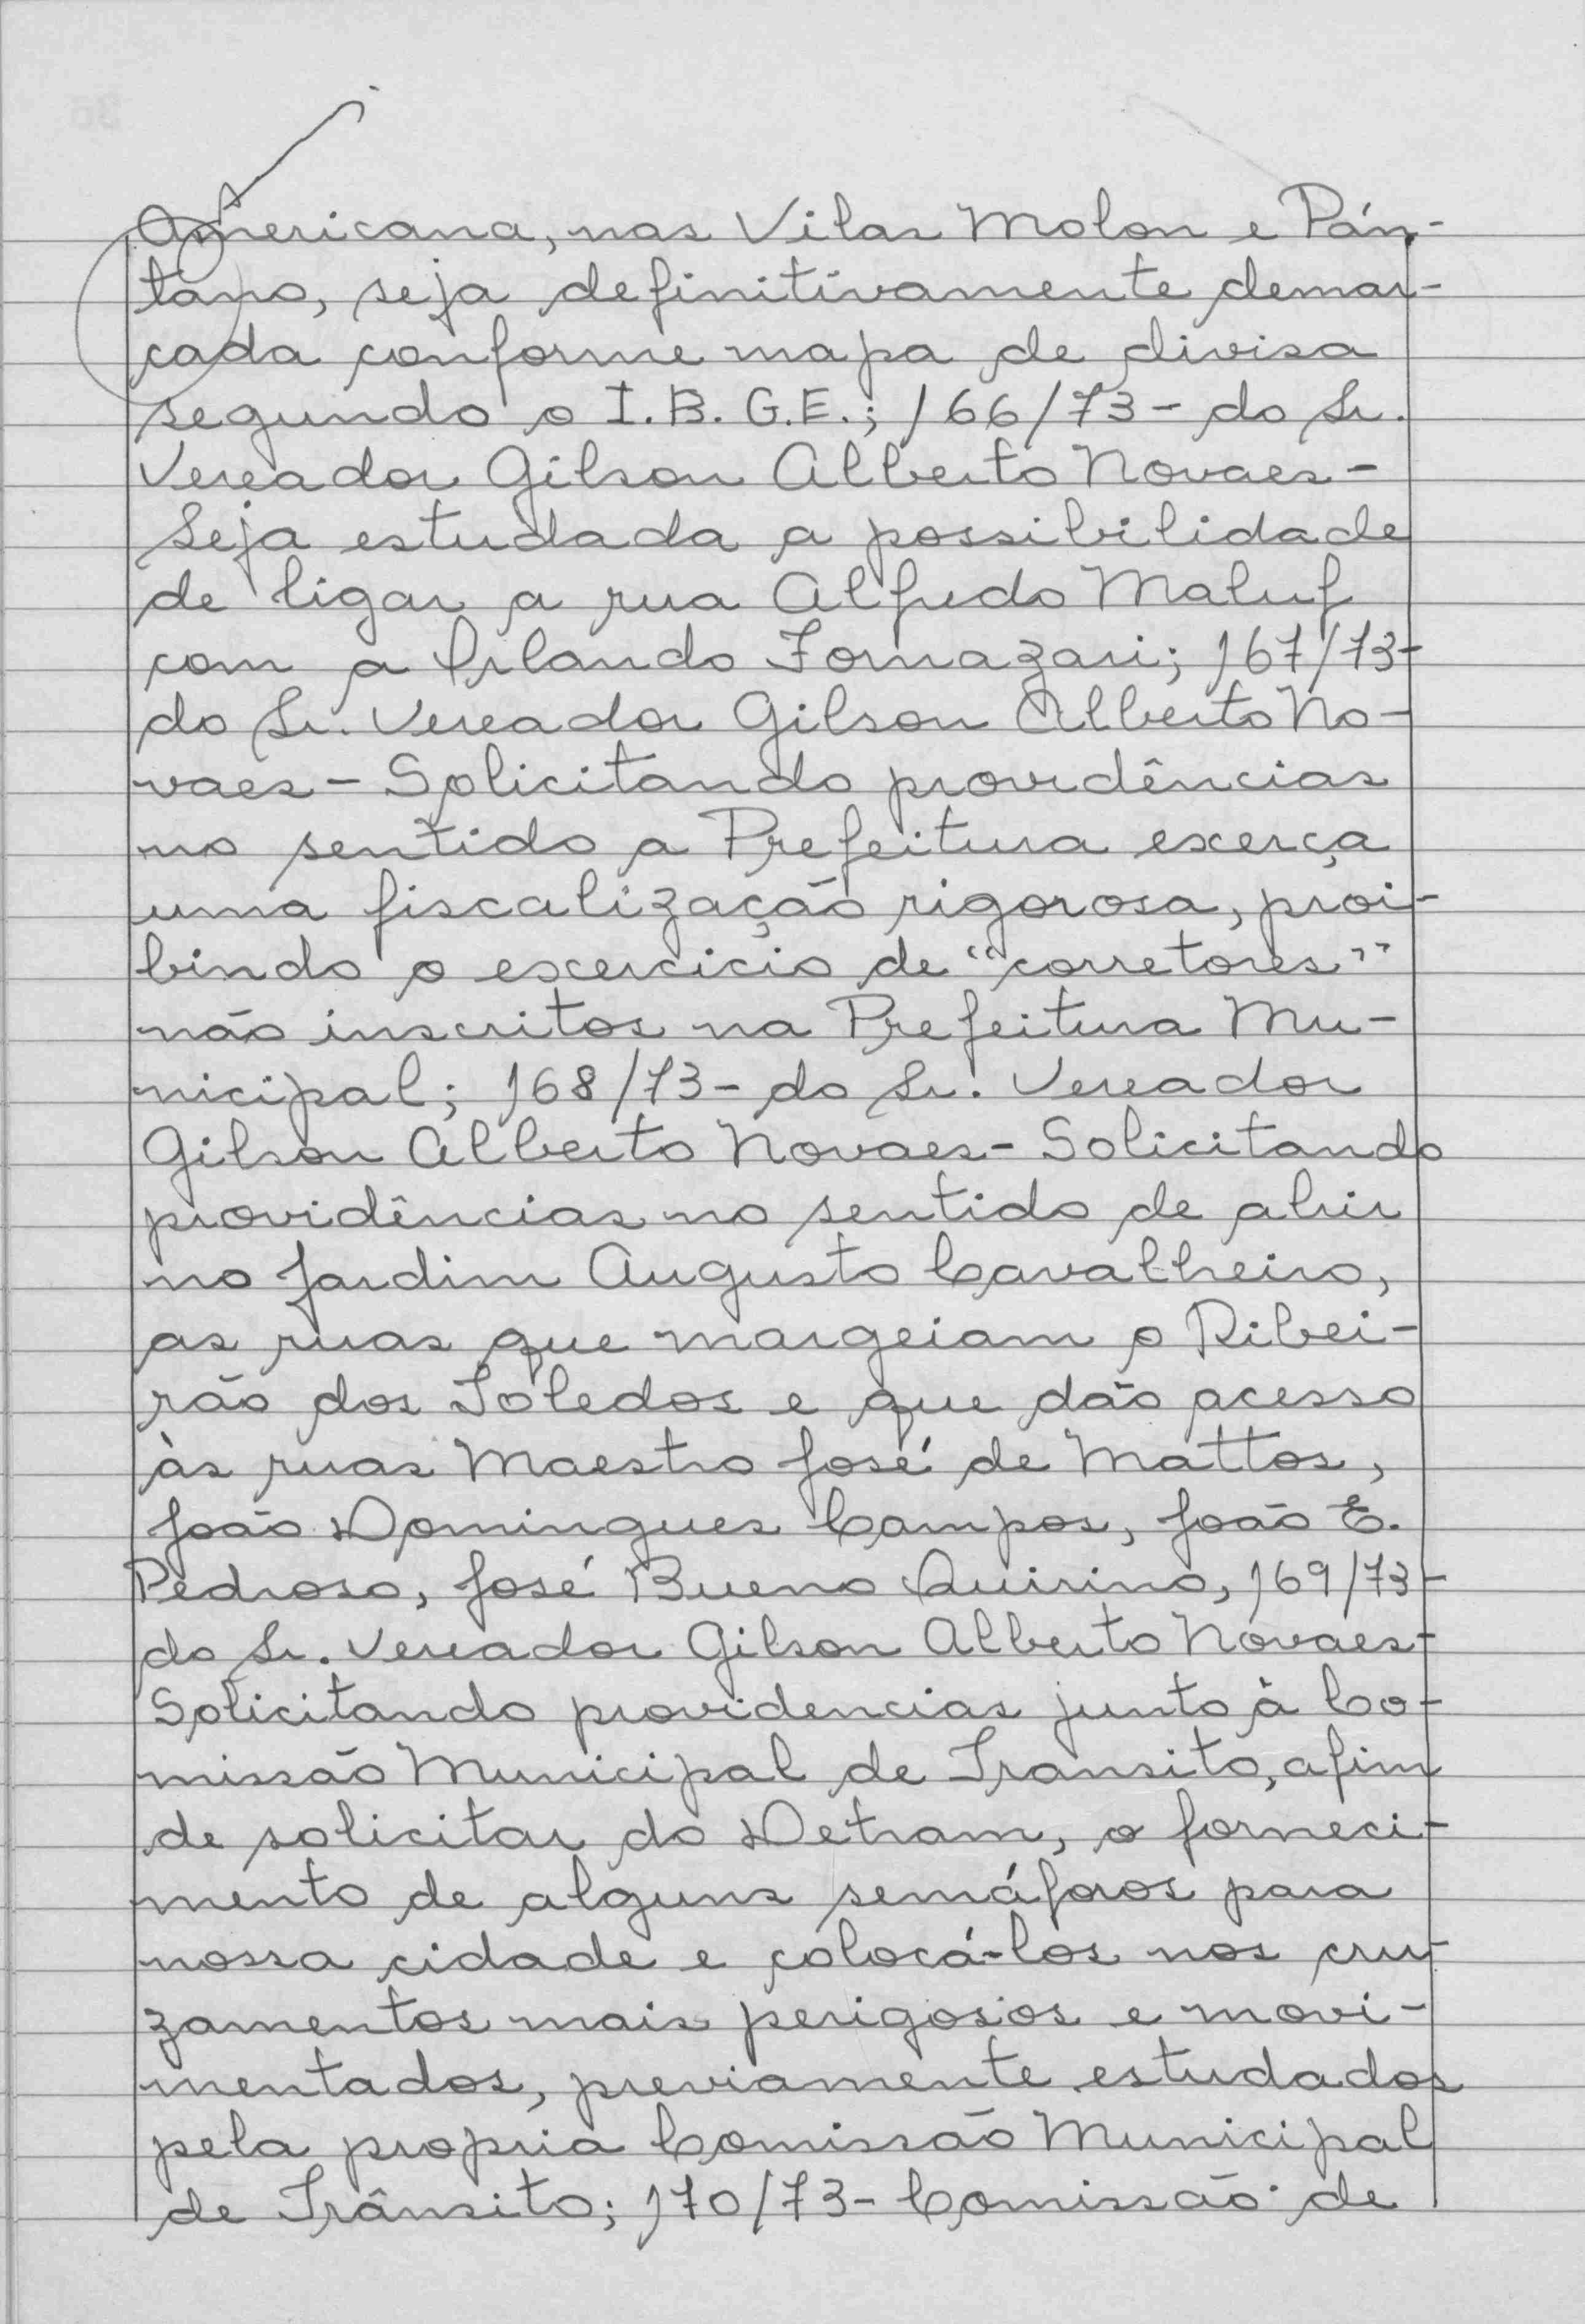 Americana, nas Vilas Molon e Pán-
tano, seja definitivamente demar-
cada conforme mapa de divisa
segundo o I.B.G.E.; 166/73- do Sr.
Vereador Gilson Alberto Novaes-
Seja estudada a possibilidade
de ligar a rua Alfredo Maluf
com a Orlando Fornazari; 167/73-
do Sr. Vereador Gilson Alberto No-
vaes- Solicitando providências
no sentido a Prefeitura exerça
uma fiscalização rigorosa, proi-
bindo o exercicio de "corretores"
não inscritos na Prefeitura Mu-
nicipal; 168/73- do Sr. Vereador
Gilson Alberto Novaes- Solicitando
providências no sentido de abrir
no Jardim Augusto Cavalheiro,
as ruas que margeiam o Ribei-
rão dos Toledos e que dão acesso
às ruas Maestro José de Mattos,
João Domingues Campos, João E.
Pedroso, José Bueno Quirino, 169/73-
do Sr. Vereador Gilson Alberto Novaes-
Solicitando providencias junto à Co-
missão Municipal de Transito, afim
de solicitar do Detram, o forneci-
mento de alguns semáforos para
nossa cidade e colocá-los nos cru-
zamentos mais perigosos e movi-
mentados, previamente estudados
pela propria Comissão Municipal
de Trânsito; 170/73- Comissão de